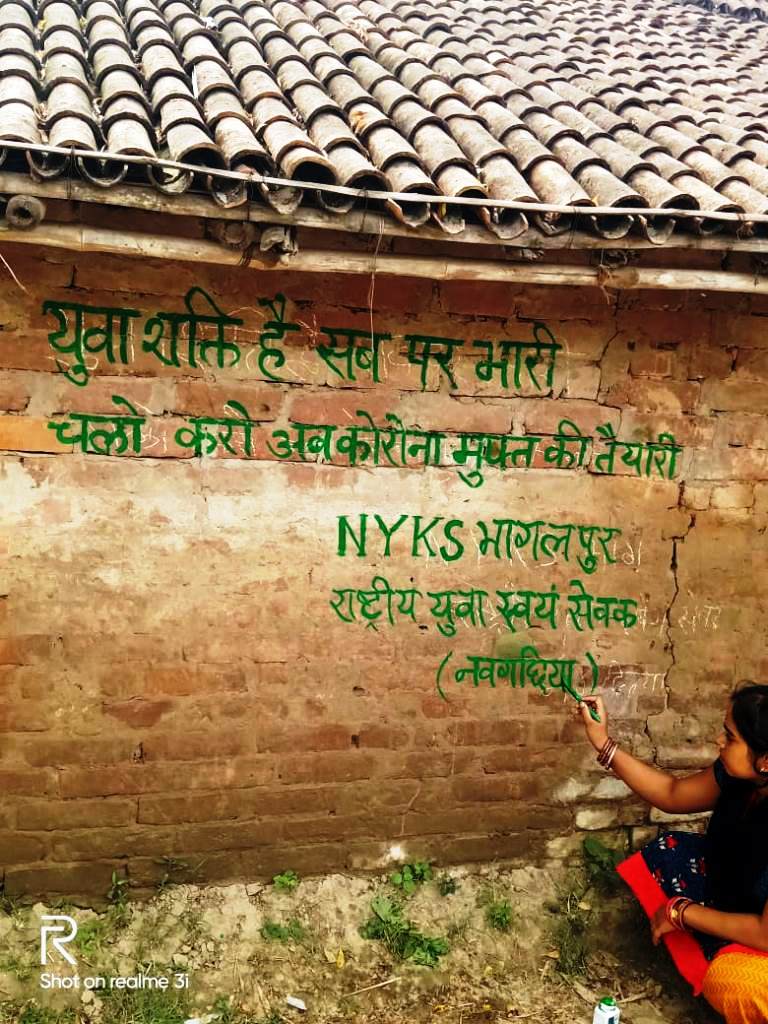 युवा शक्ति है सब पर भारी
चलो करो अब कोरोना मुक्त की तैयारी
NYKS भागलपुर
राष्ट्रीयं युवा स्वयं सेवक
(नवगछिया)
R
Shot on realme 3i